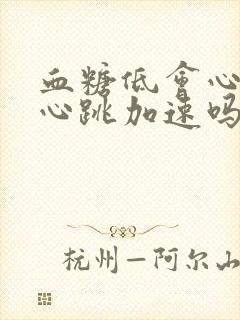 血糖低会心
心跳加速吗
杭州—阿尔山